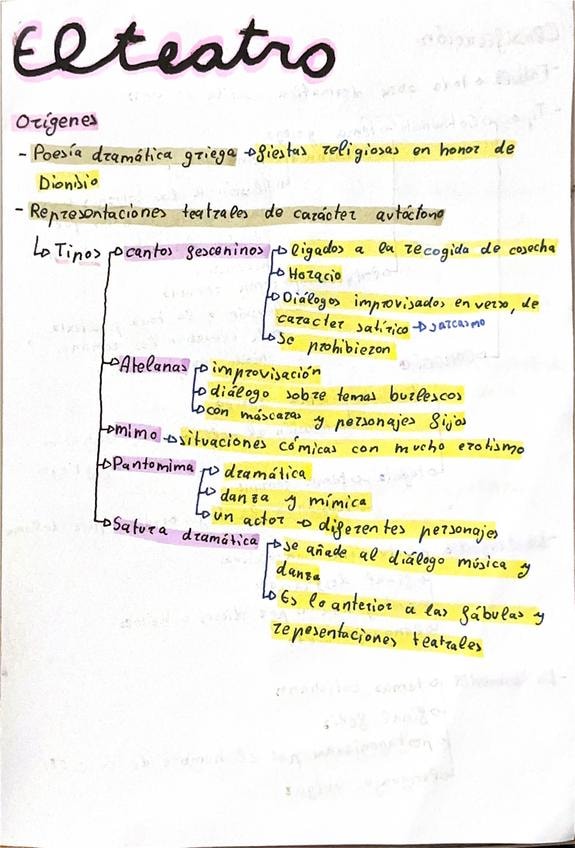 El teatro
Orígenes
- Poesía dramática griega → fiestas religiosas en honor de
Dionisio
- Representaciones teatrales de carácter autóctono
↳ Tipos
cantos fesceninos
ligados a la recogida de cosecha
Horacio
Diálogos improvisados en verso, de
caracter satírico → sarcasmo
Se prohibieron
Atelanas
improvisación
diálogo sobre temas burlescos
con máscaras y personajes fijos
mimo → situaciones cómicas con mucho erotismo
Pantomima
dramática
danza y mímica
un actor → diferentes personajes
Satura dramática
se añade al diálogo música y
danza
Es lo anterior a las fábulas y
representaciones teatrales